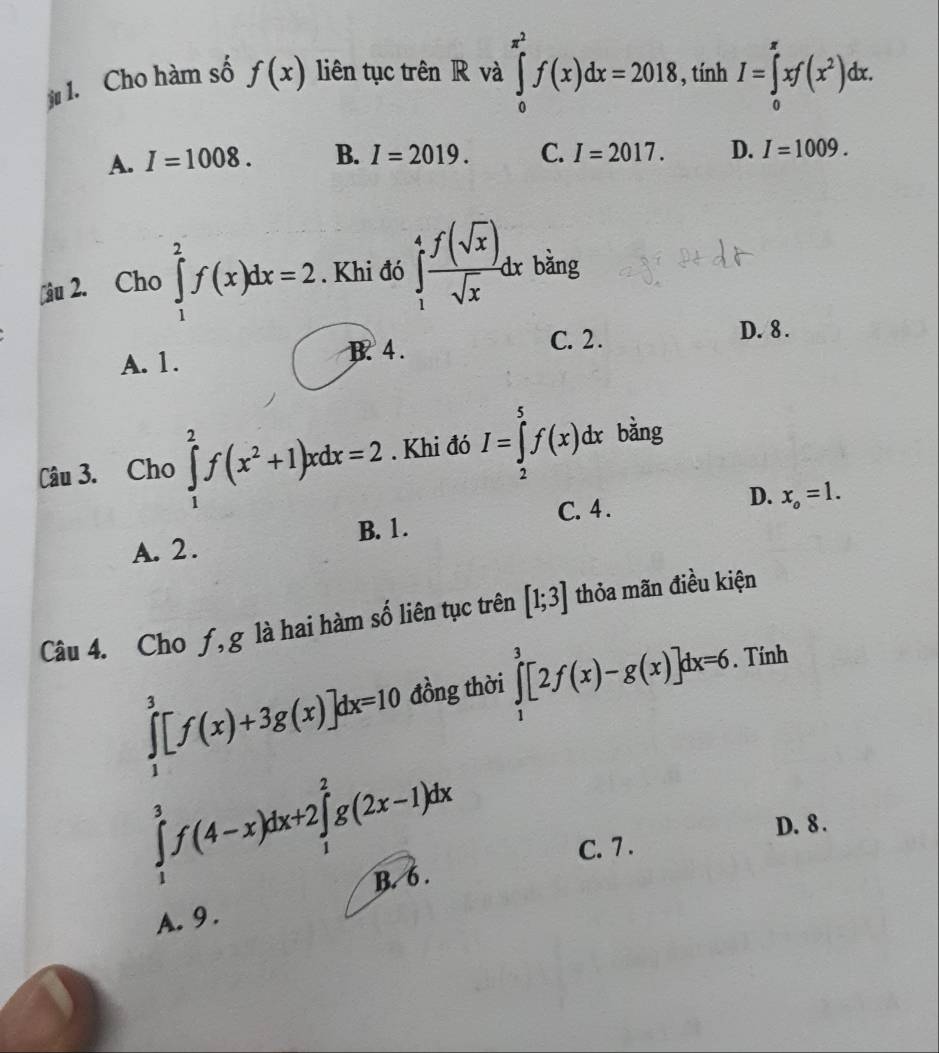 1. Cho hàm số f(x) liên tục trên ℝ và ∫₀^{π²} f(x)dx = 2018, tính I = ∫₀^{π} xf(x²)dx.
A. I = 1008. B. I = 2019. C. I = 2017. D. I = 1009.
Câu 2. Cho ∫₁² f(x)dx = 2. Khi đó ∫₁⁴ f(√x)/√x dx bằng
A. 1. B. 4. C. 2. D. 8.
Câu 3. Cho ∫₁² f(x² + 1)xdx = 2. Khi đó I = ∫₂⁵ f(x)dx bằng
A. 2. B. 1. C. 4. D. xₒ = 1.
Câu 4. Cho f, g là hai hàm số liên tục trên [1;3] thỏa mãn điều kiện
∫₁³ [f(x)+3g(x)]dx=10 đồng thời ∫₁³ [2f(x)−g(x)]dx=6. Tính
∫₁³ f(4−x)dx+2∫₁² g(2x−1)dx
A. 9. B. 6. C. 7. D. 8.